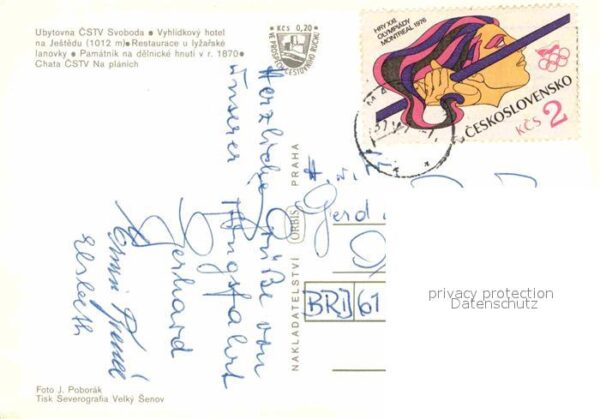 Ubytovna ČSTV Svoboda • Vyhlídkový hotel
na Ještědu (1012 m) • Restaurace u lyžařské
lanovky • Památník na dělnické hnutí v r. 1870 •
Chata ČSTV Na pláních
Kčs 0,20
VE PROSPĚCH CESTOVNÍHO RUCHU
HRY XXI.
OLYMPIÁDY
MONTREAL 1976
ČESKOSLOVENSKO
KČS 2
Herzliche Grüße von
unserer
Gerhard
NAKLADATELSTVÍ ORBIS PRAHA
Gerd
BRD 61
privacy protection
Datenschutz
Foto J. Poborák
Tisk Severografia Velký Šenov